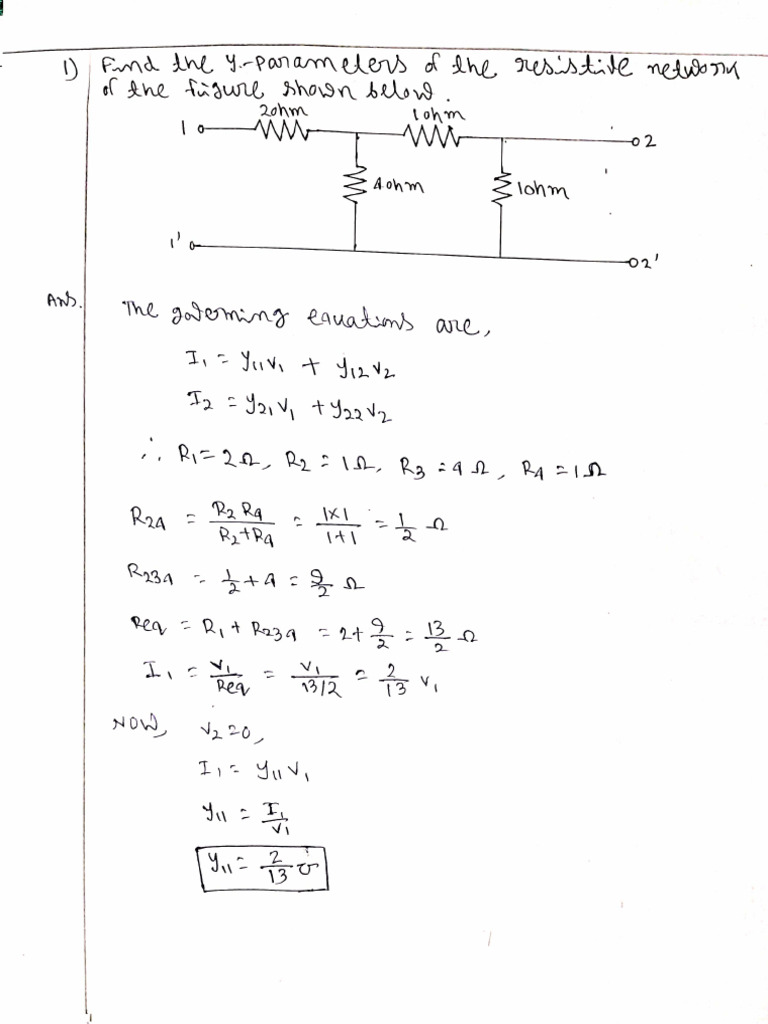 1) Find the Y-parameters of the resistive network
of the figure shown below.
2ohm 1ohm
1 2
4ohm 1ohm
1' 2'
Ans. The governing equations are,
I₁ = y₁₁v₁ + y₁₂v₂
I₂ = y₂₁v₁ + y₂₂v₂
∴ R₁ = 2Ω, R₂ = 1Ω, R₃ = 4Ω, R₄ = 1Ω
R₂₄ = R₂R₄/(R₂+R₄) = 1×1/(1+1) = 1/2 Ω
R₂₃₄ = 1/2 + 4 = 9/2 Ω
Req = R₁ + R₂₃₄ = 2 + 9/2 = 13/2 Ω
I₁ = V₁/Req = V₁/(13/2) = 2/13 V₁
NOW, V₂=0,
I₁ = y₁₁V₁
y₁₁ = I₁/V₁
y₁₁ = 2/13 ℧